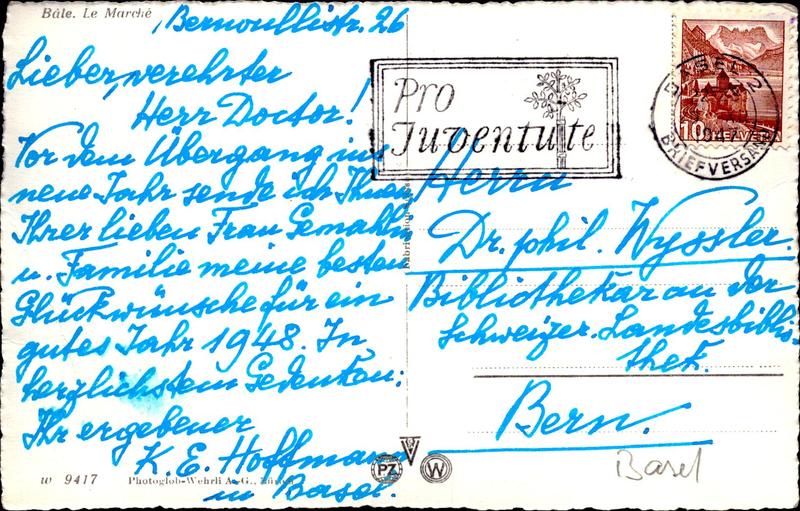 Bâle. Le Marché
Bernoullistr. 26
Lieber, verehrter
Herr Doctor!
Vor dem Übergang ins
neue Jahr sende ich Ihnen
Ihrer lieben Frau Gemahlin
u. Familie meine besten
Glückwünsche für ein
gutes Jahr 1948. In
herzlichstem Gedenken:
Ihr ergebener
K. E. Hoffmann
in Basel.
W 9417 Photoglob-Wehrli A.-G., Zürich
PZ
W
Pro
Juventute
BASEL 2
BRIEFVERSAND
10
Herrn
Dr. phil. Wyssler.
Bibliothekar an der
Schweizer. Landesbiblio-
thek.
Bern.
Basel